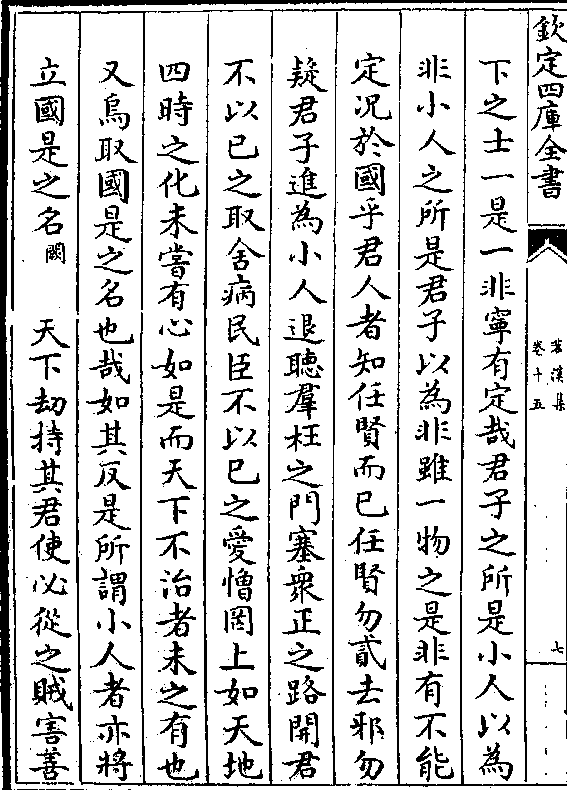 欽定四庫全書
苕溪集
卷十五
七
下之士一是一非寧有定哉君子之所是小人以為
非小人之所是君子以為非雖一物之是非有不能
定况於國乎君人者知任賢而已任賢勿貳去邪勿
疑君子進為小人退聽羣枉之門塞衆正之路開君
不以已之取舍病民臣不以已之愛憎罔上如天地
四時之化未嘗有心如是而天下不治者未之有也
又烏取國是之名也哉如其反是所謂小人者亦將
立國是之名闕 天下劫持其君使必從之賊害善